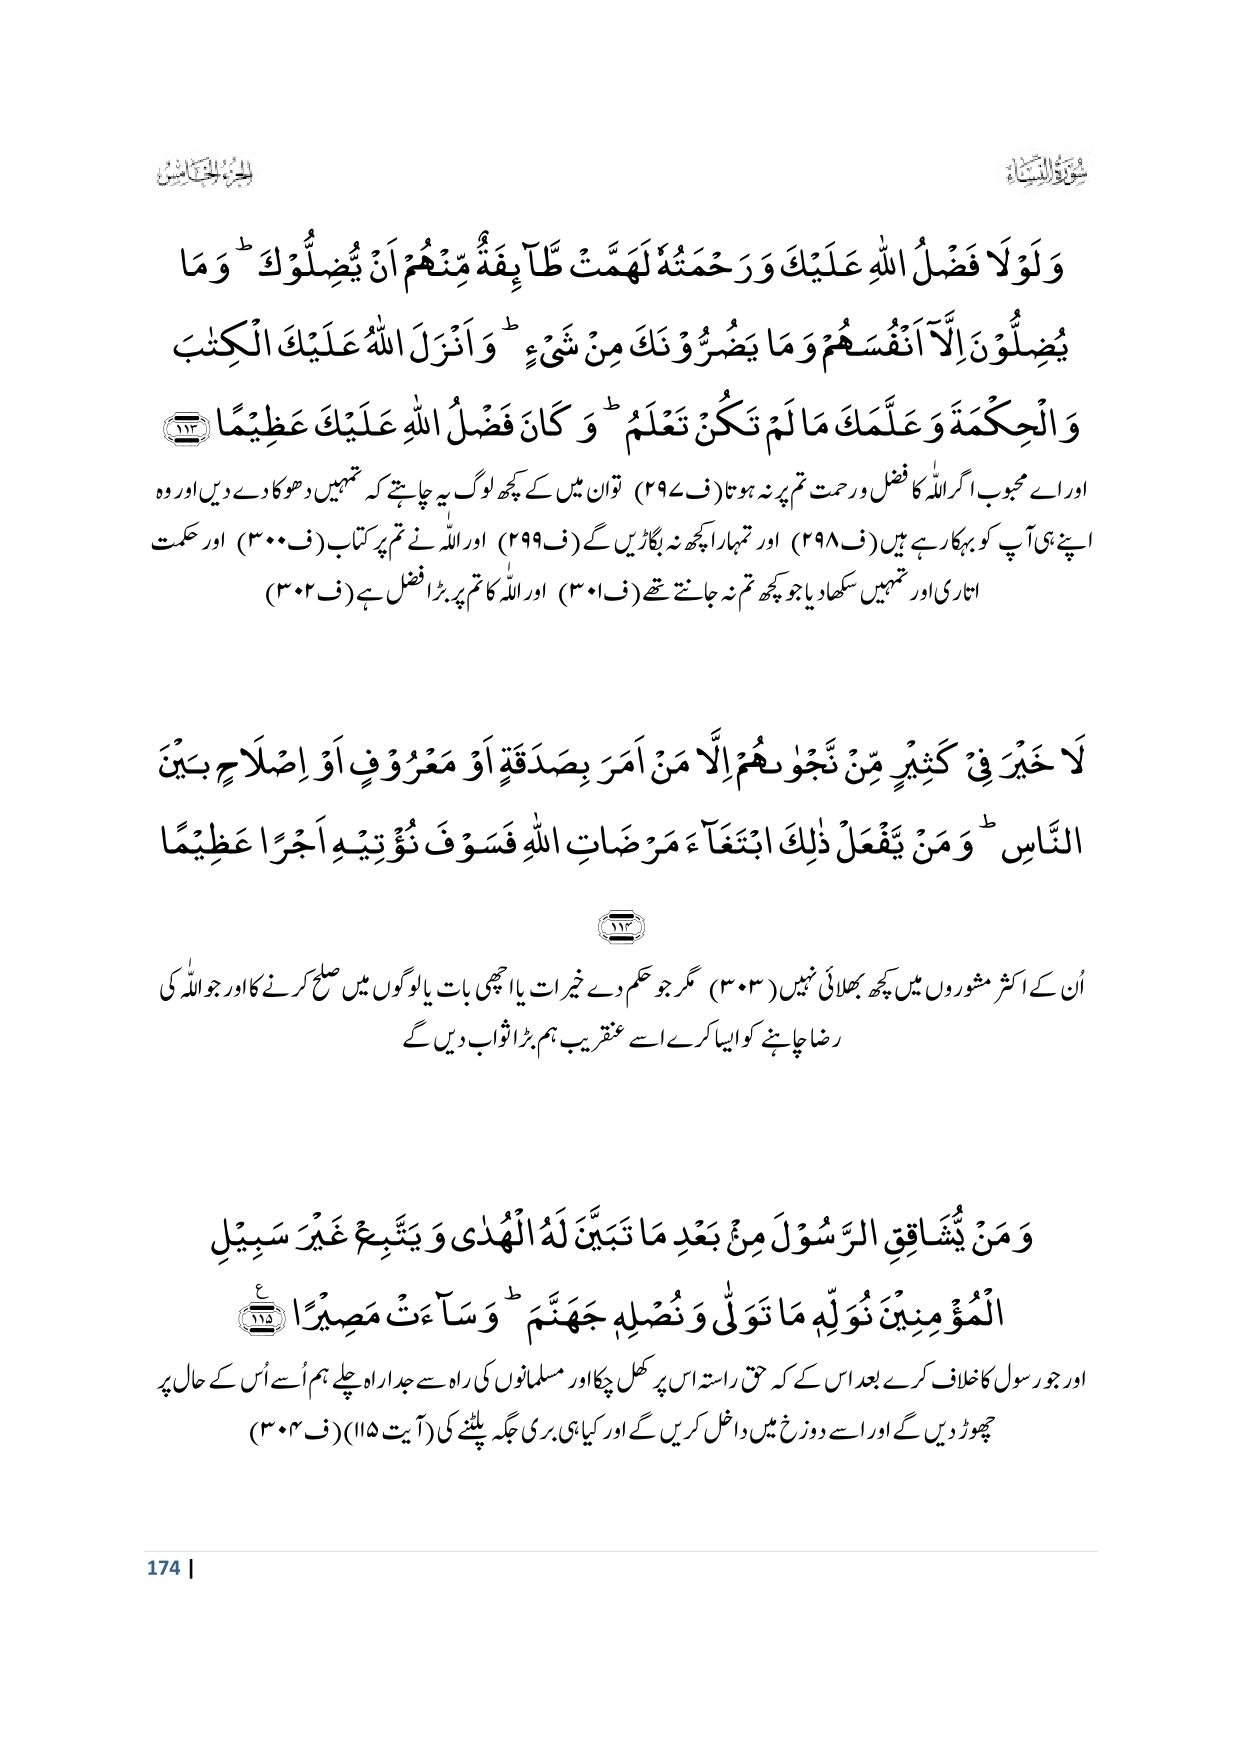 سُوْرَةُ النِّسَآء
الجزء الخامس
وَ لَوْ لَا فَضْلُ اللّٰهِ عَلَیْكَ وَ رَحْمَتُهٗ لَهَمَّتْ طَّآىٕفَةٌ مِّنْهُمْ اَنْ یُّضِلُّوْكَؕ-وَ مَا
یُضِلُّوْنَ اِلَّاۤ اَنْفُسَهُمْ وَ مَا یَضُرُّوْنَكَ مِنْ شَیْءٍؕ-وَ اَنْزَلَ اللّٰهُ عَلَیْكَ الْكِتٰبَ
وَ الْحِكْمَةَ وَ عَلَّمَكَ مَا لَمْ تَكُنْ تَعْلَمُؕ-وَ كَانَ فَضْلُ اللّٰهِ عَلَیْكَ عَظِیْمًا ۱۱۳
اور اے محبوب اگر اللّٰہ کا فضل و رحمت تم پر نہ ہوتا (ف۲۹۷) تو ان میں کے کچھ لوگ یہ چاہتے کہ تمہیں دھوکا دے دیں اور وہ
اپنے ہی آپ کو بہکا رہے ہیں (ف۲۹۸) اور تمہارا کچھ نہ بگاڑیں گے (ف۲۹۹) اور اللّٰہ نے تم پر کتاب (ف۳۰۰) اور حکمت
اتاری اور تمہیں سکھا دیا جو کچھ تم نہ جانتے تھے (ف۳۰۱) اور اللّٰہ کا تم پر بڑا فضل ہے (ف۳۰۲)
لَا خَیْرَ فِیْ كَثِیْرٍ مِّنْ نَّجْوٰىهُمْ اِلَّا مَنْ اَمَرَ بِصَدَقَةٍ اَوْ مَعْرُوْفٍ اَوْ اِصْلَاحٍۭ بَیْنَ
النَّاسِؕ-وَ مَنْ یَّفْعَلْ ذٰلِكَ ابْتِغَآءَ مَرْضَاتِ اللّٰهِ فَسَوْفَ نُؤْتِیْهِ اَجْرًا عَظِیْمًا
۱۱۴
اُن کے اکثر مشوروں میں کچھ بھلائی نہیں (۳۰۳) مگر جو حکم دے خیرات یا اچھی بات یا لوگوں میں صلح کرنے کا اور جو اللّٰہ کی
رضا چاہنے کو ایسا کرے اسے عنقریب ہم بڑا ثواب دیں گے
وَ مَنْ یُّشَاقِقِ الرَّسُوْلَ مِنْۢ بَعْدِ مَا تَبَیَّنَ لَهُ الْهُدٰى وَ یَتَّبِـعْ غَیْرَ سَبِیْلِ
الْمُؤْمِنِیْنَ نُوَلِّهٖ مَا تَوَلّٰى وَ نُصْلِهٖ جَهَنَّمَؕ-وَ سَآءَتْ مَصِیْرًا ۱۱۵ ع
اور جو رسول کا خلاف کرے بعد اس کے کہ حق راستہ اس پر کھل چکا اور مسلمانوں کی راہ سے جدا راہ چلے ہم اُسے اُس کے حال پر
چھوڑ دیں گے اور اسے دوزخ میں داخل کریں گے اور کیا ہی بری جگہ پلٹنے کی (آیت ۱۱۵)(ف۳۰۴)
174 |